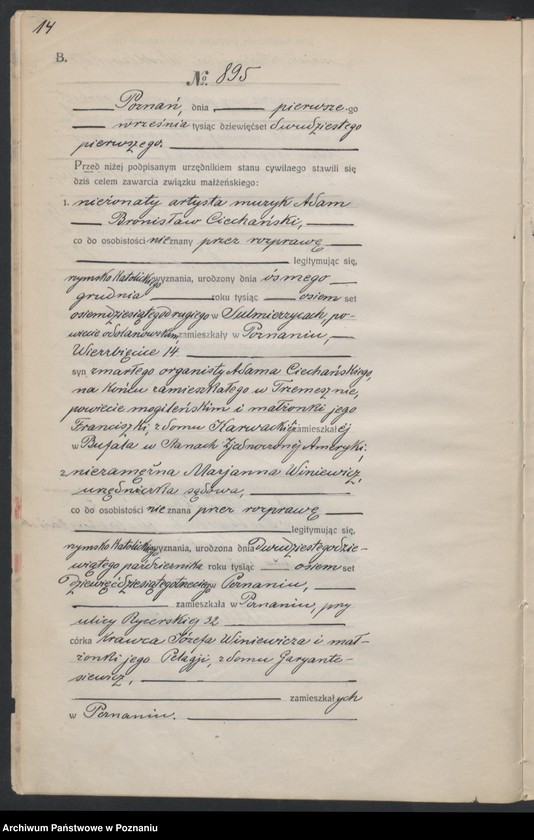 14
B.
No. 895
Poznań, dnia pierwsze-go
września tysiąc dziewięćset dwudziestego
pierwszego.
Przed niżej podpisanym urzędnikiem stanu cywilnego stawili się
dziś celem zawarcia związku małżeńskiego:
1. nieżonaty artysta muzyk Adam
Bronisław Ciechański,
co do osobistości nieznany przez rozprawę
legitymując się,
rzymsko katolickiego wyznania, urodzony dnia ósmego
grudnia roku tysiąc osiem set
osiemdziesiątego drugiego w Sulmierzycach, po-
wiecie odolanowskim, zamieszkały w Poznaniu,
Wierzbięcice 14
syn zmarłego organisty Adama Ciechańskiego,
na końcu zamieszkałego w Trzemesznie,
powiecie mogileńskim i małżonki jego
Franciszki, z domu Karwackiej zamieszkałej
w Bufala w Stanach Zjednoczonej Ameryki;
2. niezamężna Marjanna Winiewicz,
urzędniczka sądowa,
co do osobistości nieznana przez rozprawę
legitymując się,
rzymsko katolickiego wyznania, urodzona dnia dwudziestego dzie-
wiątego października roku tysiąc osiem set
dziewięćdziesiątego trzeciego w Poznaniu,
zamieszkała w Poznaniu, przy
ulicy Rycerskiej 32
córka krawca Józefa Winiewicza i mał-
żonki jego Pelagji, z domu Garyante-
siewicz,
zamieszkałych
w Poznaniu.
Archiwum Państwowe w Poznaniu